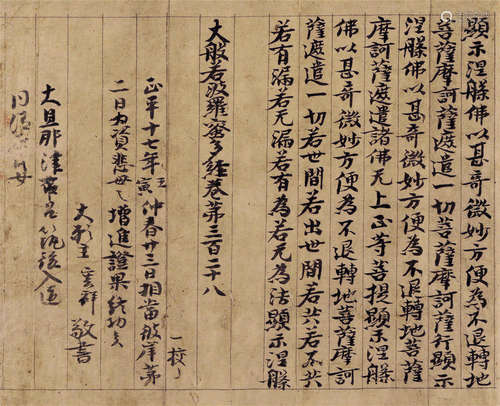 顯示涅槃佛以甚奇微妙方便為不退轉地
菩薩摩訶薩遮遣一切菩薩摩訶薩行顯示
涅槃佛以甚奇微妙方便為不退轉地菩薩
摩訶薩遮遣諸佛无上正等菩提顯示涅槃
佛以甚奇微妙方便為不退轉地菩薩摩訶
薩遮遣一切若世間若出世間若共若不共
若有漏若无漏若有為若无為法顯示涅槃
大般若波羅蜜多經卷第三百二十八
一校了
正平十七年壬寅仲春廿三日相當彼岸第
二日為資悲母之增進證果終功矣
敬書
大旦那津